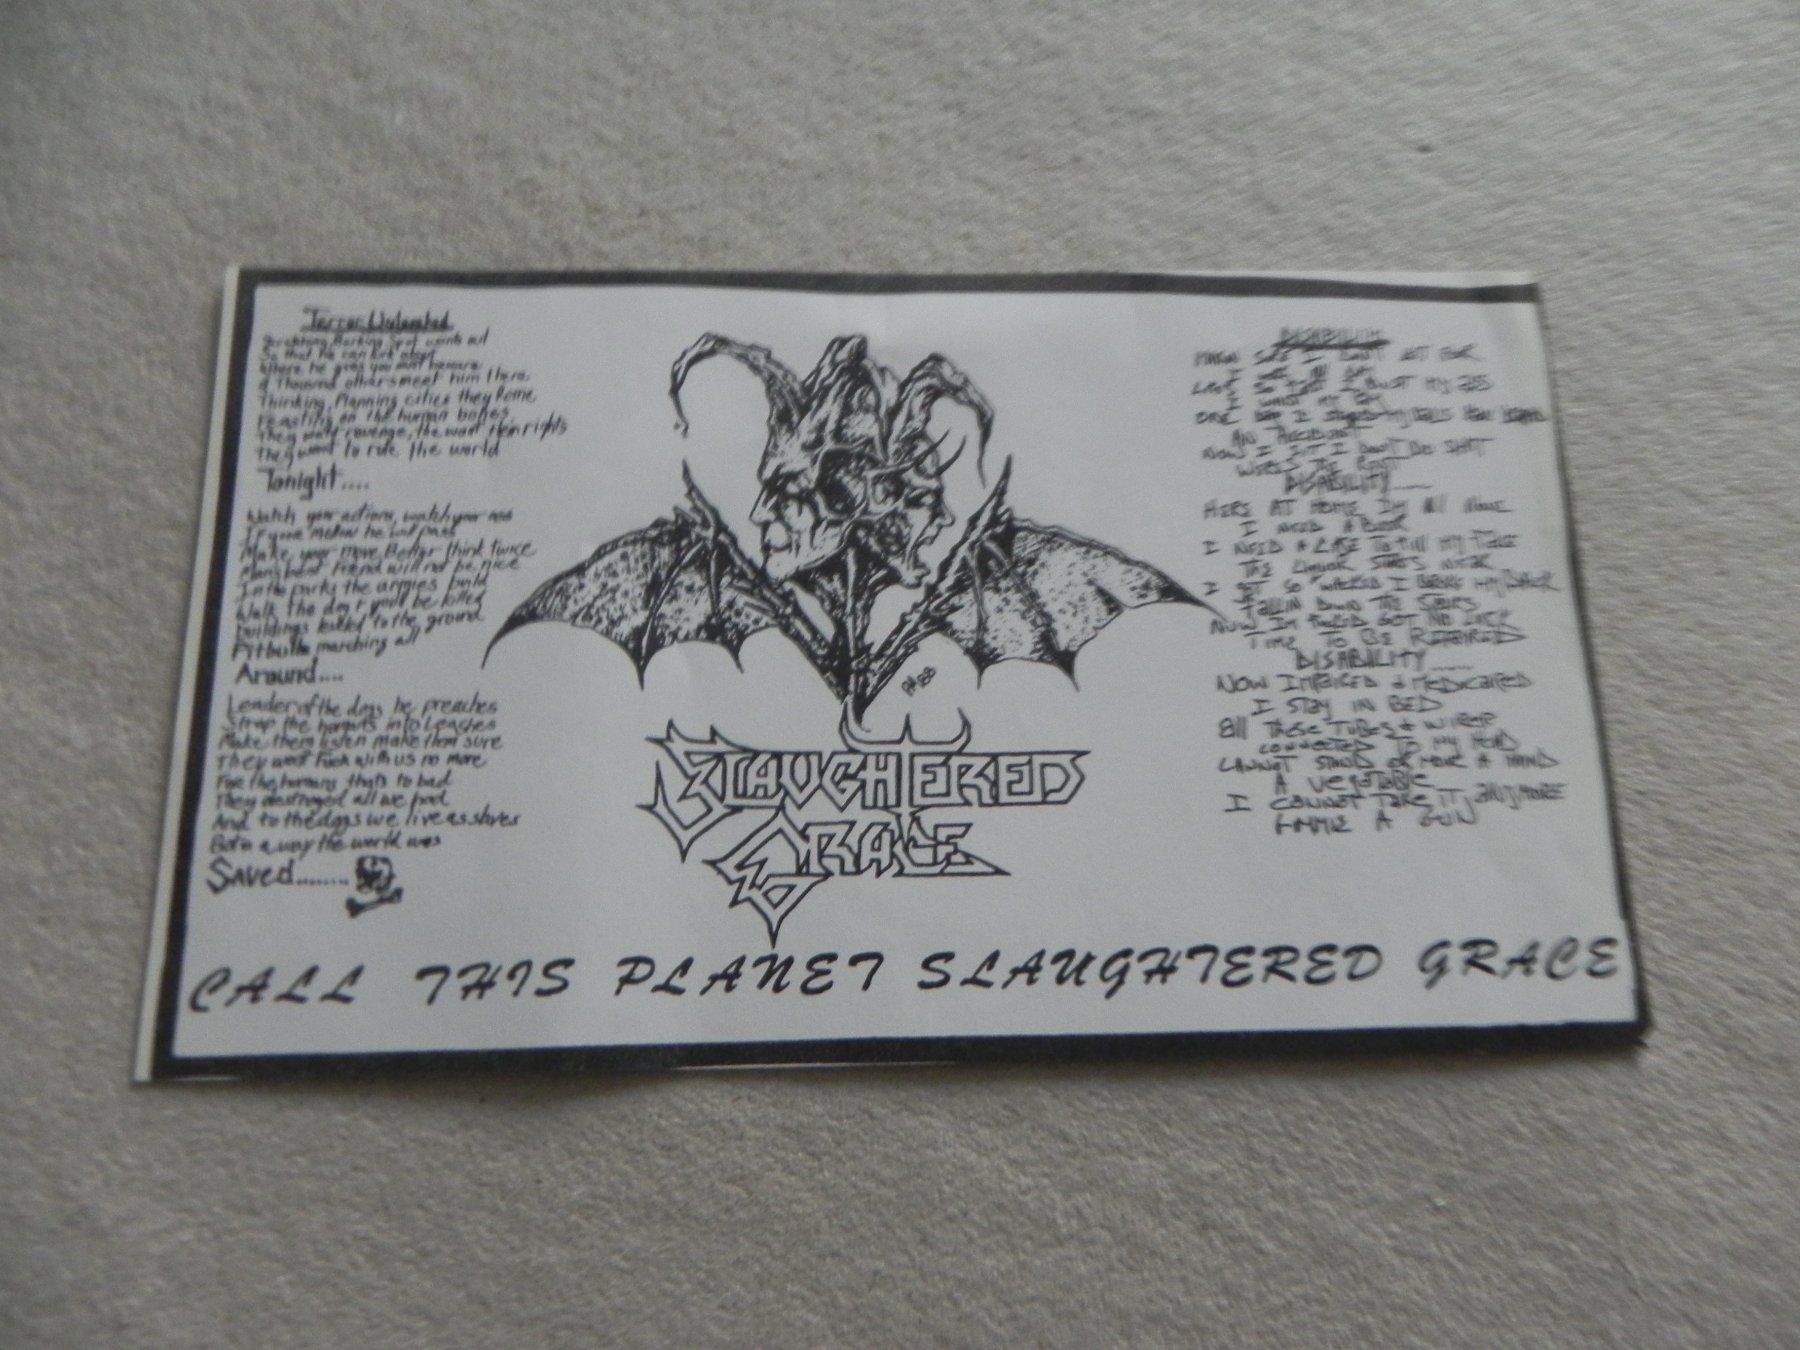 Terror Unleashed
Scratching, Barking Spot wants out
So that he can lurk about
Where he goes you must beware
A Thousand others meet him there
Thinking, Planning cities they Rome
Feasting on the human bones
They want revenge, the want their rights
They want to rule the world
Tonight....
Watch your actions, watch your ass
Make your move, Better think twice
Mans best friend will not be nice
In the parks the armies build
Walk the dog + youll be killed
buildings leveled to the ground
Pitbulls marching all
Around....
Leader of the dogs he preaches
Strap the humans into Leashes
Make them listen make them sure
They wont Fuck with us no more
For the humans thats to bad
They destroyed all we had
And to the dogs we live as slaves
But in a way the world was
Saved........
SLAUGHTERED
GRACE
DISABILITY
AN ACCIDENT
NOW I SIT I DON'T DO SHIT
DISABILITY......
HERE AT HOME IM All Alone
I NEED A BEER
I NEED A CASE TO Fill MY FACE
THE LIQUOR STORES NEAR
I GOT SO WACKED I BROKE MY BACK
FALLIN DOWN THE STAIRS
NOW IM GOT NO DICK
TIME TO BE REPAIRED
DISABILITY......
NOW IMPAIRED + MEDICATED
I STAY IN BED
All THESE TUBES + WIRES
CONNECTED TO MY HEAD
CANNOT STAND OR MOVE A HAND
A VEGETABLE
I CANNOT TAKE IT ANYMORE
GIMMIE A GUN
CALL THIS PLANET SLAUGHTERED GRACE